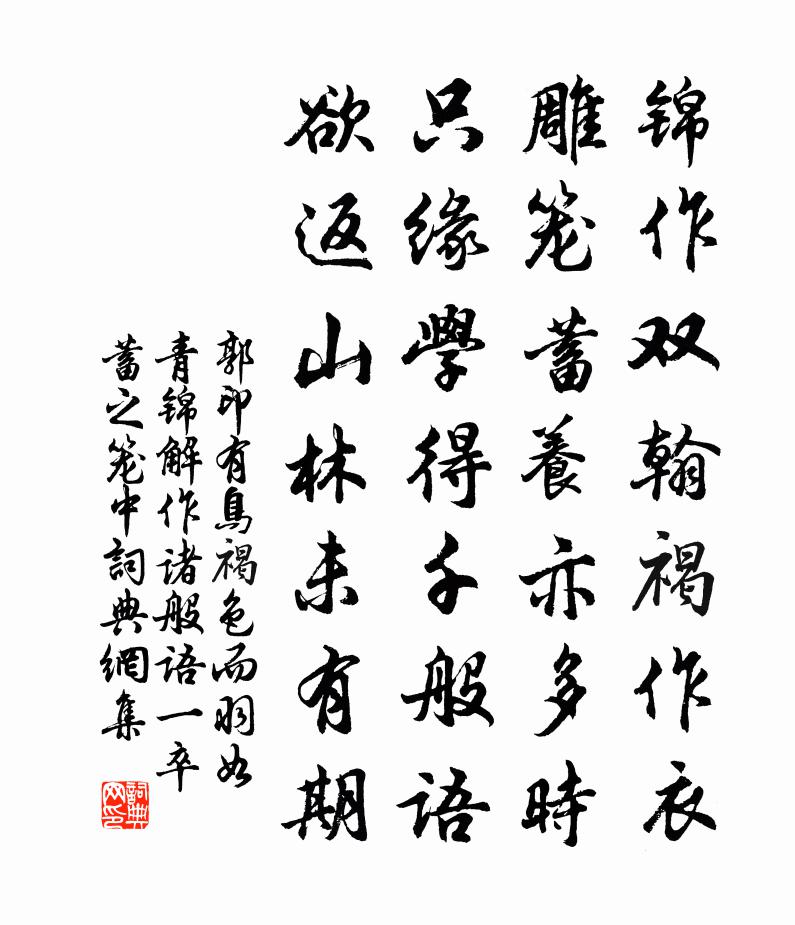 锦作双翰褐作衣
雕笼蓄養亦多時
只缘學得千般语
欲返山林未有期
郭印有鳥褐色而羽如
青锦解作诸般语一卒
蓄之笼中詞典網集
詞典网印